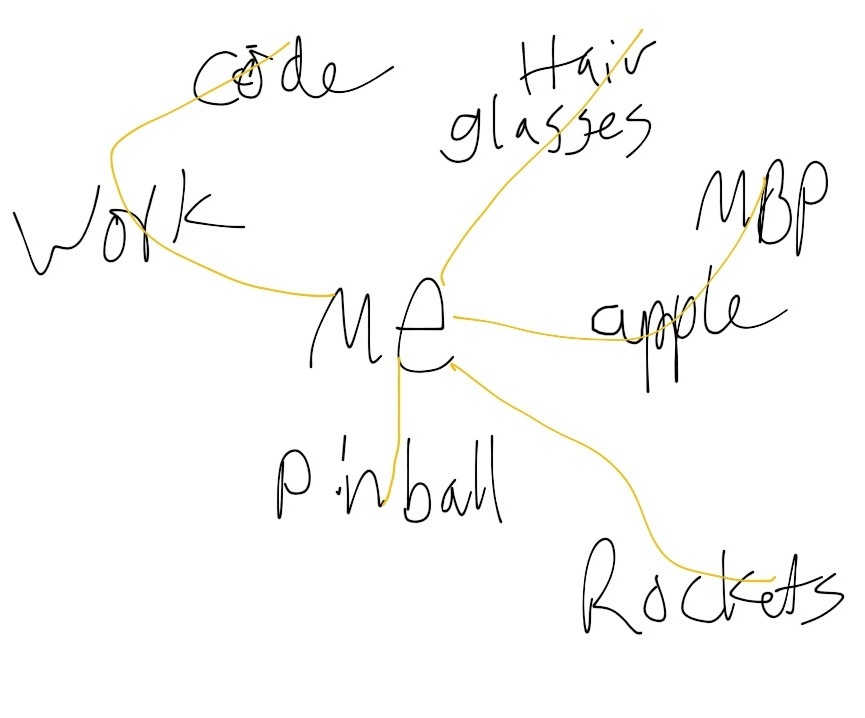 Code
Hair
glasses
MBP
Work
Me
apple
Pinball
Rockets